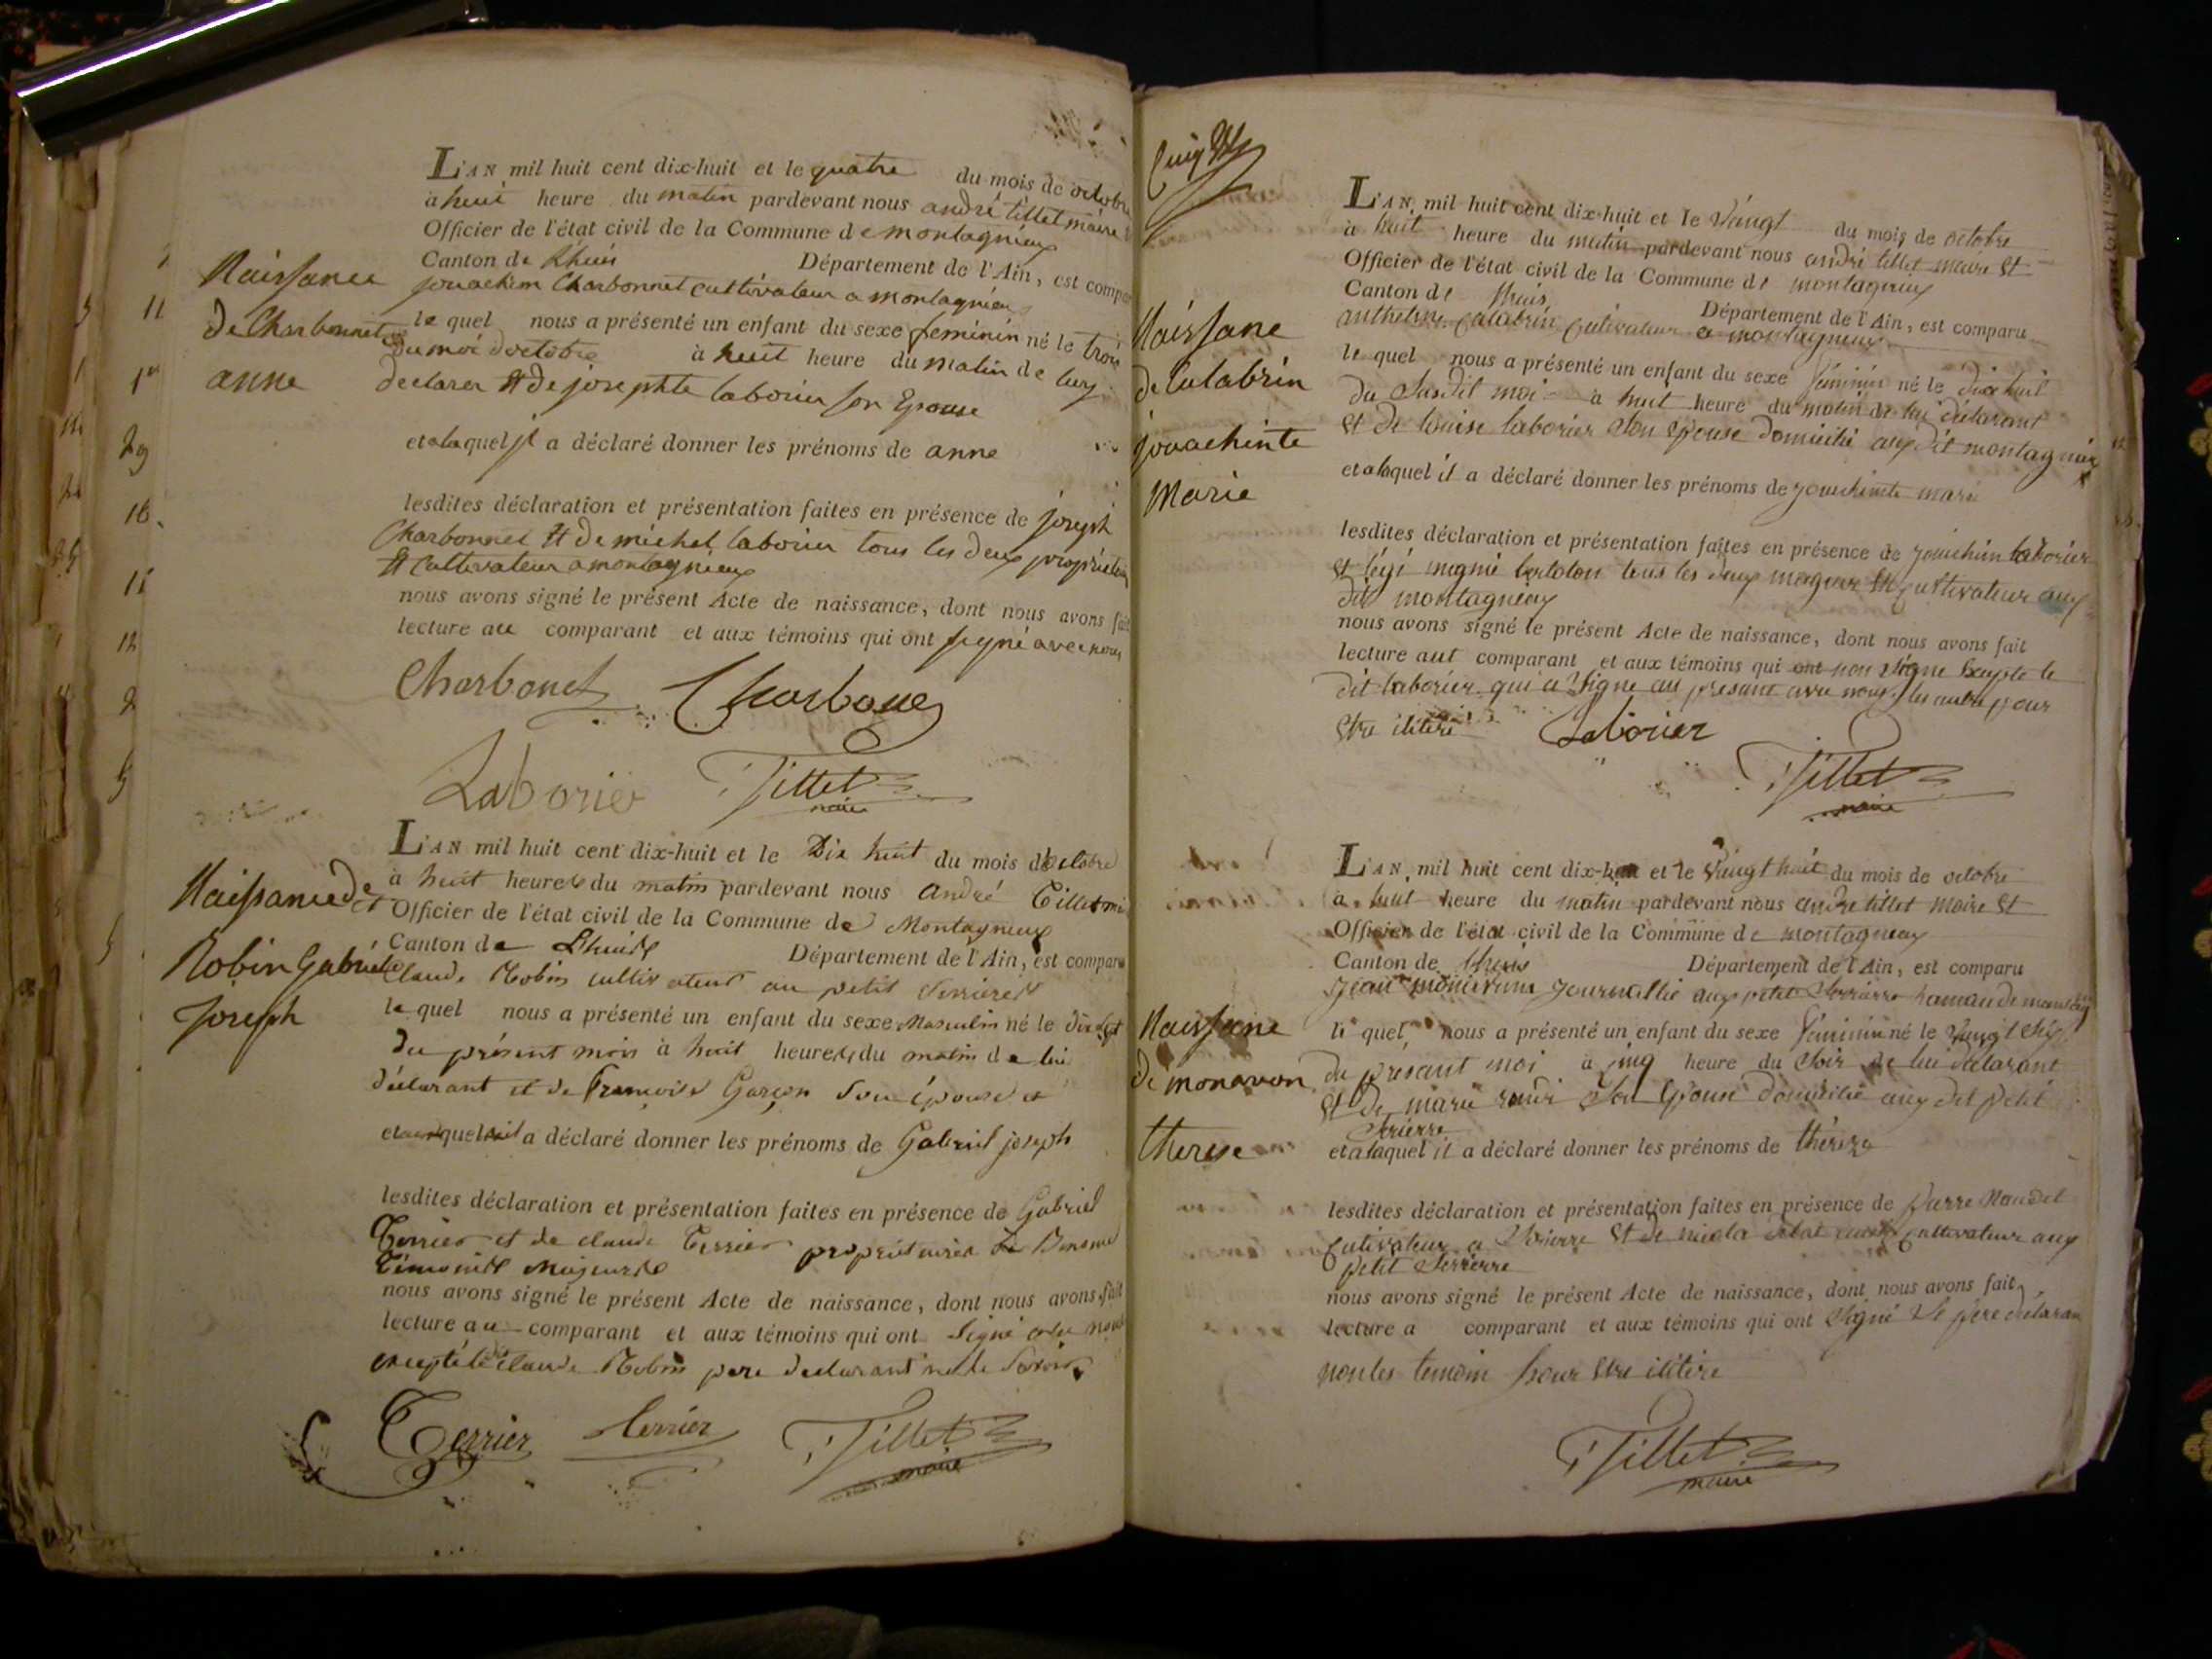 L'AN mil huit cent dix-huit et le quatre du mois de octobre
à huit heure du matin pardevant nous andré tillet maire
Officier de l'état civil de la Commune de montagnieux
Canton de Lhuis Département de l'Ain, est compar
Naissance
jouachim Charbonnet cultivateur a montagnieu
de Charbonnet
le quel nous a présenté un enfant du sexe feminin né le trois
du moi d'octobre à huit heure du matin de luy
anne
declarer et de josephte laborier son Epouse
et a laquel il a déclaré donner les prénoms de anne
lesdites déclaration et présentation faites en présence de joseph
Charbonnet et de michel laborier tous les deux propriétair
et Cultivateur a montagnieux
nous avons signé le présent Acte de naissance, dont nous avons fait
lecture au comparant et aux témoins qui ont signé avec nous
Charbonet Charbone
Laborier Tillet
maire
L'AN mil huit cent dix-huit et le Dix huit du mois d'octobre
à huit heures du matin pardevant nous André Tillet
Naissance de
Officier de l'état civil de la Commune de Montagnieux
Canton de Lhuis Département de l'Ain, est comparu
Robin Gabriel
Claude Robin cultivateur au petit Serrieres
Joseph
le quel nous a présenté un enfant du sexe Masculin né le dix sept
du présent mois à huit heures du matin de lui
déclarant et de Francoise Garçon son épouse et
et auquel il a déclaré donner les prénoms de Gabriel joseph
lesdites déclaration et présentation faites en présence de Gabriel
Terrier et de claude Terrier propriétaires
Témoins Majeurs
nous avons signé le présent Acte de naissance, dont nous avons fait
lecture au comparant et aux témoins qui ont Signé avec nous
excepté le dit Claude Robin pere declarant
Terrier terrier Tillet
maire
L'AN mil huit cent dix-huit et le vaingt du mois de octobre
à huit heure du matin pardevant nous andré tillet maire et
Officier de l'état civil de la Commune de montagnieux
Canton de lhuis Département de l'Ain, est comparu
Naissane
anthelme calabrin cutivateur a montagnieux
de Calabrin
le quel nous a présenté un enfant du sexe féminin né le dix huit
du Susdit moi à huit heure du matin de lui déclarant
jouachinte
et de louise laborier son épouse domicilié aux dit montagnieux
Marie
et a laquel il a déclaré donner les prénoms de jouachinte marie
lesdites déclaration et présentation faites en présence de jouachim laborier
et tous les deux majeur et cultivateur aux
dit montagnieux
nous avons signé le présent Acte de naissance, dont nous avons fait
lecture aut comparant et aux témoins qui ont non signe Exepte le
dit laborier qui a signe au presant avec nous les autre pour
Etre ilitéré Laborier
Tillet
maire
L'AN mil huit cent dix-huit et le vingt huit du mois de octobre
à huit heure du matin pardevant nous andre tillet maire et
Officier de l'état civil de la Commune de montagnieux
Canton de lhuis Département de l'Ain, est comparu
jean journallié aux petit Serrierre hamau de
Naissane
le quel nous a présenté un enfant du sexe féminin né le vingt
de monavon
du presant moi à cinq heure du soir de lui déclarant
et de marie son épouse domicilié aux dit petit
Serierre
therese
et a laquel il a déclaré donner les prénoms de thérèze
lesdites déclaration et présentation faites en présence de pierre
cutivateur a et de cultivateur aux
petit Serrierre
nous avons signé le présent Acte de naissance, dont nous avons fait
lecture a comparant et aux témoins qui ont signé le père déclaran
non les temoin pour Etre ilitéré
Tillet
maire